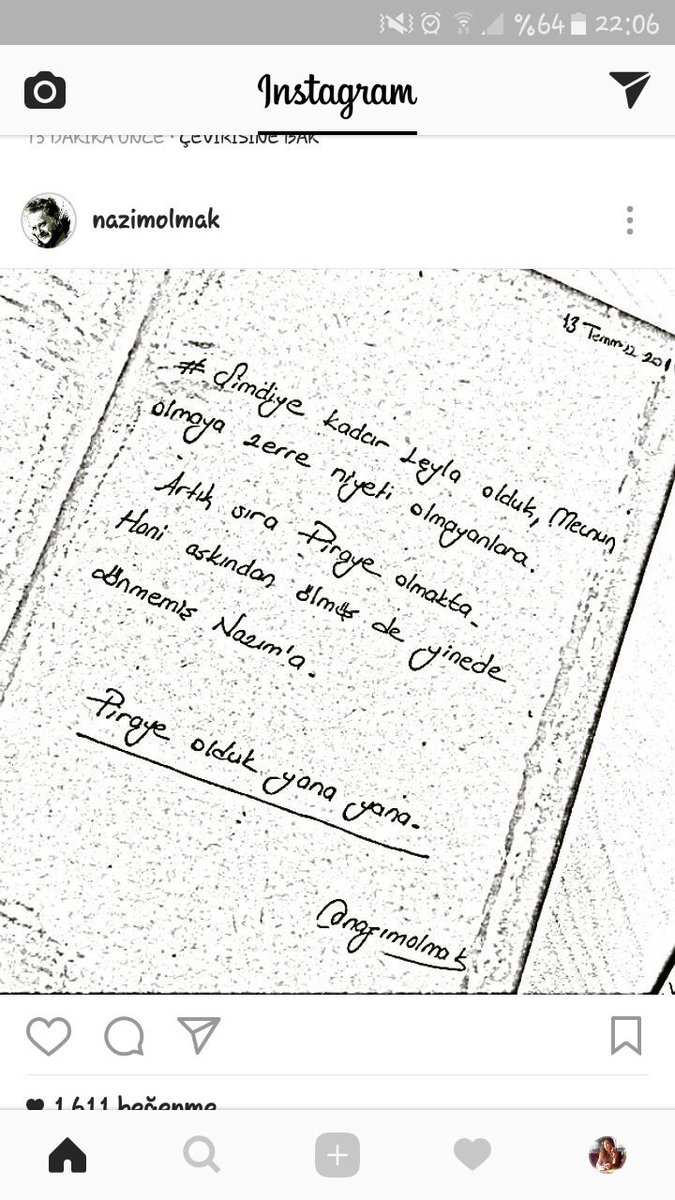 %64 22:06
Instagram
15 DAKİKA ÖNCE • ÇEVİRİSİNE BAK
nazimolmak
13 Temmuz 201
# Şimdiye kadar Leyla olduk, Mecnun
olmaya zerre niyeti olmayanlara.
Artık sıra Piraye olmakta.
Hani aşkından ölmüş de yinede
dönmemiş Nazım'a.
Piraye olduk yana yana.
@nazımolmak
1.611 beğenme